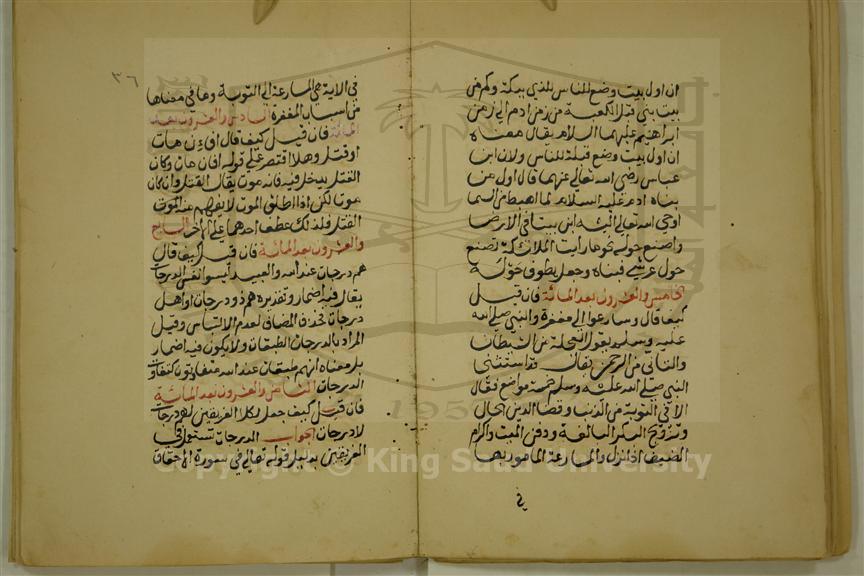 ان اول بيت وضع للناس للذي ببكة وكم من
بيت بني قبل الكعبة من زمن ادم الى زمن
ابراهيم عليهما السلام يقال معناه
ان اول بيت وضع قبلة للناس ولان ابن
عباس رضي الله تعالى عنهما قال اول من
بناه ادم عليه السلام لما اهبط من السما
اوحى الله تعالى اليه ابن بيتا في الارض
واصنع حوله نحو ما رايت الملائكة تصنع
حول عرشي فبناه وجعل يطوف حوله
الخامس والعشرون بعد المائة فان قيل
كيف قال وسارعوا الى مغفرة والنبي صلى الله
عليه وسلم يقول العجلة من الشيطان
والتاني من الرحمن يقال قد استثنى
النبي صلى الله عليه وسلم خمسة مواضع فقال
الا في التوبة من الذنب وقضا الدين الحال
وتزويج البكر البالغة ودفن الميت واكرام
الضيف اذا نزل والمسارعة المامور بها
في
٣٦
في الاية هي المسارعة الى التوبة وما في معناها
من اسباب المغفرة السادس والعشرون بعد
المائة فان قيل كيف قال افان مات
او قتل وهلا اقتصر على قوله افان مات وكان
القتل يدخل فيه فانه موت يقال القتل وان كان
موتا لكن اذا اطلق الموت لا يفهم منه الموت
القتل فلذلك عطف احدهما على الاخر السابع
والعشرون بعد المائة فان قيل كيف قال
هم درجات عند الله والعبيد ليسوا نفس الدرجات
يقال فيه اضمار وتقديره هم ذوو درجات او اهل
درجات فحذف المضاف لعدم الالتباس وقيل
المراد بالدرجات الطبقات ولا يكون فيه اضمار
بل معناه انهم طبقات عند الله متفاوتون كتفاوت
الدرجات الثامن والعشرون بعد المائة
فان قيل كيف جعل لكلا الفريقين درجات
لا درجات الجواب الدرجات تستعمل في
الفريقين بدليل قوله تعالى في سورة الاحقاف
Copyright © King Saud University
195